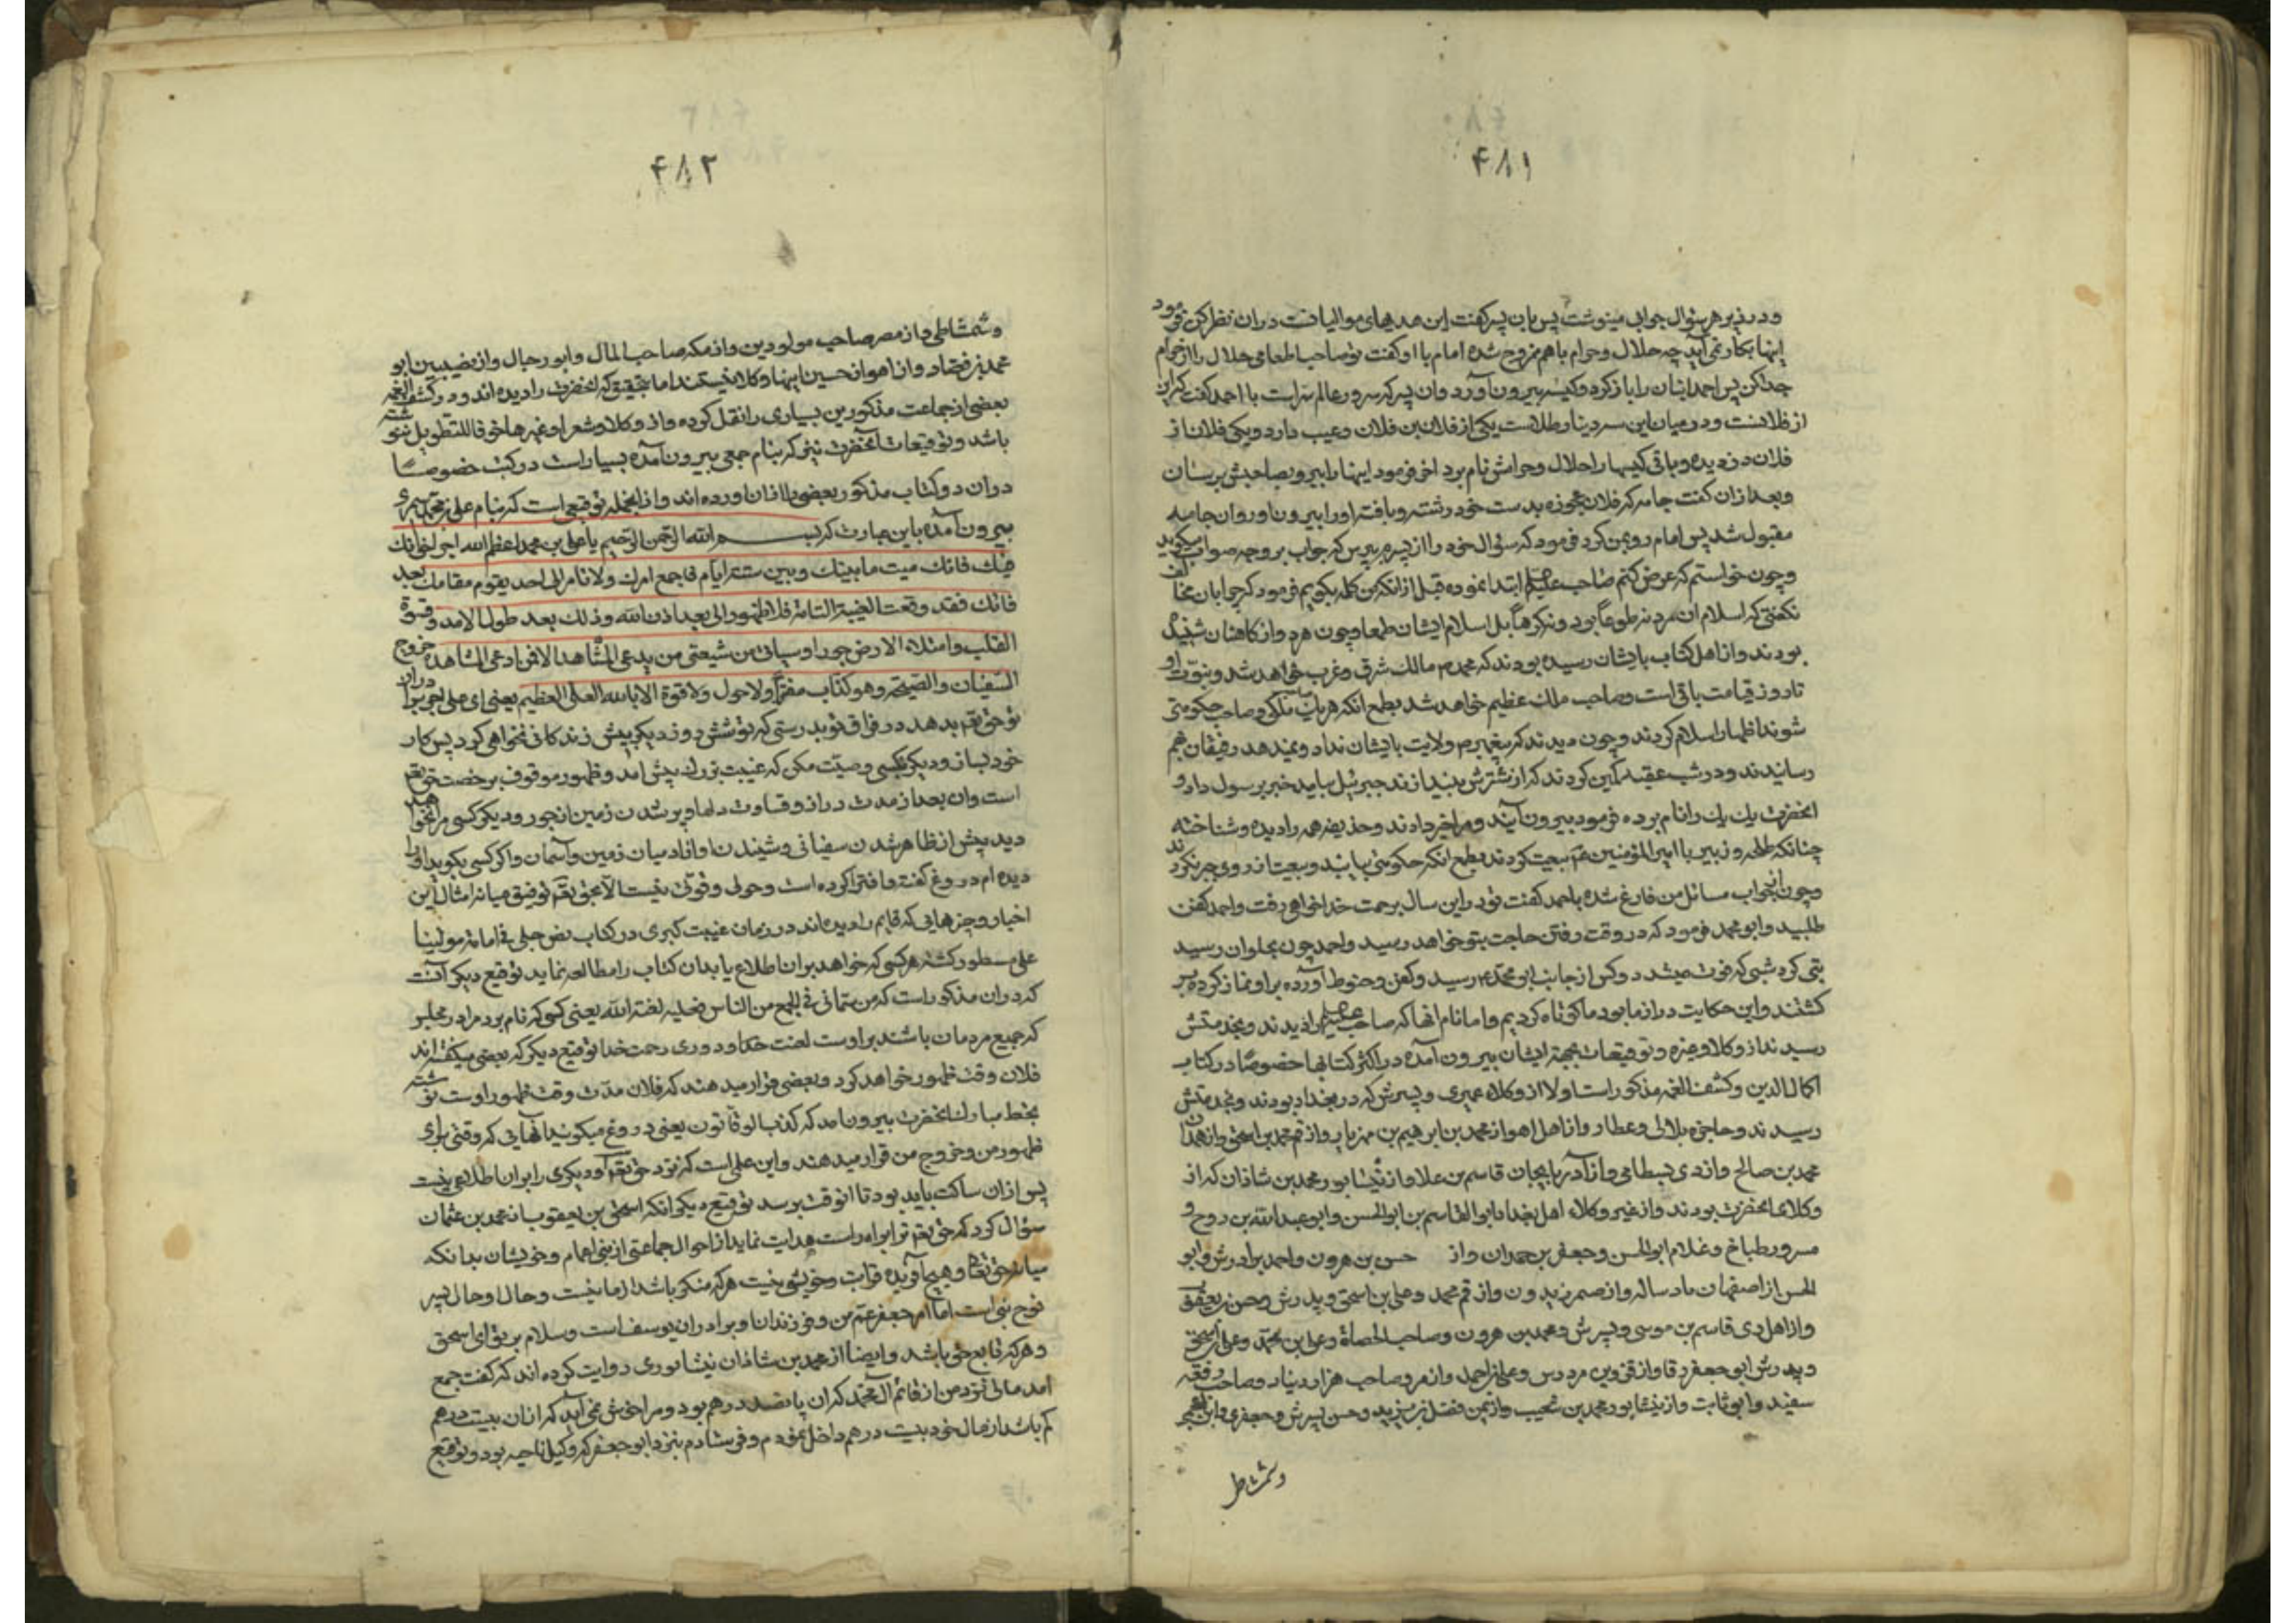 ۴۸۱
و در زیر هر سؤال جوابی مینوشت پس بان پسر کفت این هدیهای موالیانست دران نظر کن فرمود
اینها بکار نمی آید چه حلال و حرام باهم ممزوج شده امام با او کفت تو صاحب الهامی حلال را از حرام
جدا کن پس احمد انبان را باز کرد و کیسه بیرون آورد وان پسر که سرور عالم سر است با احمد کفت که این
از فلانست و در میان این سه دینار طلاست یکی از فلان بن فلان و عیب دارد و یکی فلان از
فلان دزدیده و باقی کیسها را حلال و حرامش نام برد اخر فرمود اینها را ببر و بصاحبش برسان
و بعد ازان کفت جامه که فلان عجوزه بدست خود رشته و بافته اورا بیرون اور وان جامه
مقبول شد پس امام رو بمن کرد فرمود که سؤال خود را از پسرم بپرس که جواب بر وجه صواب میکوید
و چون خواستم که عرض کنم صاحب علیه ابتدا نموده قبل از انکه من کلمه بکویم فرمود که چرا بان مخالف
نکفتی که اسلام ان مرد نه طوعاً بود و نه کرهاً بل اسلام ایشان طمعا و چون هر دو از کاهنان شنیده
بودند و از اهل کتاب بایشان رسیده بودند که محمد م مالک شرق و غرب خواهد شد و نبوت او
تا روز قیامت باقی است و صاحب ملک عظیم خواهد شد بطمع انکه هر یک صاحب ملکی و صاحب حکومتی
شوند اظهار اسلام کردند و چون دیدند که پیغمبر م ولایت بایشان نداد و نمیدهد رفیقان هم
رسانیدند و در شب عقبه کمین کردند که از شترش بیندازند جبرئیل بیامد خبر برسول داد و
انحضرت یک یک را نام برده فرمود بیرون آیند و مرا خبر دادند و حذیفه همه را دیده و شناخته
چنانکه طلحه و زبیر با امیرالمؤمنین عم بیعت کردند بطمع انکه حکومتی بیابند و بیعت از روی جبر نکردند
و چون ازجواب مسائل من فارغ شده باحمد کفت تو در این سال برحمت خدا خواهی رفت و احمد کفن
طلبید و ابو محمد فرمود که در وقت رفتن حاجت بتو خواهد رسید و احمد چون بحلوان رسید
تبی کرد شبی که فوت میشد دو کس از جانب ابو محمد م رسید و کفن و حنوط آورده بر او نماز کرده بر
کشتند و این حکایت دراز ما بود ما کوتاه کردیم و اما نام انها که صاحب علیه را دیدند و بخدمتش
رسیدند از وکلا و غیره و توقیعات بجهة ایشان بیرون آمده در اکثر کتابها خصوصاً در کتاب
اکمال الدین و کشف الغمه مذکور است اولا از وکلاء عمری و پسرش که در بغداد بودند و بخدمتش
رسیدند و حاجز و بلالی و عطار و از اهل اهواز محمد بن ابرهیم بن مهزیار و از قم محمد بن اسحق و از همدان
محمد بن صالح و از ری بسطامی و از آذربایجان قاسم بن علا و از نیشابور محمد بن شاذان که از
وکلای انحضرت بودند و از غیر وکلاء اهل بغداد ابوالقاسم بن ابوالحسن و ابو عبدالله بن روح و
مسرور طباخ و غلام ابوالحسن و جعفر بن حمدان و از حسن بن هرون و احمد برادرش و ابو
الحسن از اصفهان باد ساله و از صیمر زیدون و از قم محمد و علی بن اسحق و پدرش و حسن بن یعقوب
و از اهل ری قاسم بن موسی و پسرش و محمد بن هرون و صاحب الحصاة و علی بن محمد و علی بن اسحق
و پدرش ابو جعفر رفا و از قزوین مردس و علی بن احمد و از مرو صاحب هزار دینار و صاحب رقعه
سفید و ابو ثابت و از نیشابور محمد بن شعیب و از یمن فضل بن یزید و حسن پسرش و جعفری و ابن الاعجمی
وشمشاطی
۴۸۲
و شمشاطی و از مصر صاحب مولودین و از مکه صاحب المال و ابو رجا و از نصیبین ابو
محمد بن فصاد و از اهواز حسین اینها وکلا نیستند اما بتحقیق که انحضرت را دیده اند و در کشف الغمه
بعضی از جماعت مذکورین بسیاری را نقل کرده و از وکلا و شعرا و غیرها خوفا للتطویل ننوشته
باشد و توقیعات آنحضرت نیز که بنام جمعی بیرون آمده بسیار است در کتب خصوصاً
دران دو کتاب مذکور بعضی را ازان اورده اند و از انجمله توقیعی است که بنام علی بن محمد سمری
بیرون آمده باین عبارت که بسم الله الرحمن الرحیم یا علی بن محمد اعظم الله اجر اخوانک
فیک فانک میت ما بینک و بین ستة ایام فاجمع امرک ولا تامر الی احد یقوم مقامک بعد
فاتک فقد وقعت الغیبة التامة فلا ظهور الی بعد اذن الله و ذلک بعد طول الامد و قسوة
القلب و امتلاء الارض جورا و سیاتی من شیعتی من یدعی المشاهد الا فمن ادعی المشاهده خروج
السفیان والصیحة و هو کذاب مفتر ولا حول ولا قوة الا بالله العلی العظیم یعنی ای علی اجر برادران
تو حق تعم بدهد در فراق تو بدرستی که تو شش روز دیکر بیش زندکانی نخواهی کرد پس کار
خود بساز و دیکر بکسی وصیت مکن که غیبت بزرک پیش امد و ظهور موقوف برخصت حق تعم
است وان بعد از مدت دراز و قساوت دلها و پر شدن زمین از جور و دیکر کسی مرا نخواهد
دید پیش از ظاهر شدن سفیانی و شنیدن اواز از میان زمین و آسمان و اکر کسی بکوید اورا
دیده ام دروغ کفته و افترا کرده است و حولی و قوتی نیست الا بحق تعم توفیق میانه امثال این
اخبار و خبرهایی که قایم را دیده اند در زمان غیبت کبری در کتاب نص جلی فی امامة مولینا
علی مسطور کشته هر کس که خواهد بران اطلاع یابد ان کتاب را مطالعه نماید توقیع دیکر آنست
که دران مذکور است که من سمانی فی المجمع من الناس فعلیه لعنة الله یعنی کسی که نام برد مرا در مجلس
که جمیع مردمان باشند بر اوست لعنت خدا و دوری رحمت خدا توقیع دیکر که بعضی میکفته اند
فلان وقت ظهور خواهد کرد و بعضی قرار میدهند که فلان مدت وقت ظهور اوست نوشته
بخط مبارک انحضرت بیرون امد که کذب الوقاتون یعنی دروغ میکویند آنهایی که وقتی برای
ظهور من و خروج من قرار میدهند و این علمی است که نزد حق تعم و دیکری را بران اطلاعی نیست
پس ازان ساکت باید بود تا انوقت برسد توقیع دیکر انکه اسحق بن یعقوب از محمد بن عثمان
سؤال کرد که حق تعم ترا براه راست هدایت نماید از احوال جماعتی از بنی اعمام و خویشان بدانکه
میانه حق تعم و هیچ آفریده قرابت و خویشی نیست هر که منکر باشد از ما نیست و حال او حال پسر
نوح نبی است اما امر جعفر عم من و فرزندان او برادران یوسف است و سلام بر تو ای اسحق
و هر که تابع حق باشد و ایضا از محمد بن شاذان نیشابوری روایت کرده اند که کفت جمع
امد مالی نزد من از قائم آل محمد که ان پانصد درهم بود و مرا خوش نمی آید که ازان بیست درهم
کم باشد از مال خود بیست درهم داخل نمودم و فرستادم بنزد ابو جعفر که وکیل ناحیه بود و توقیع